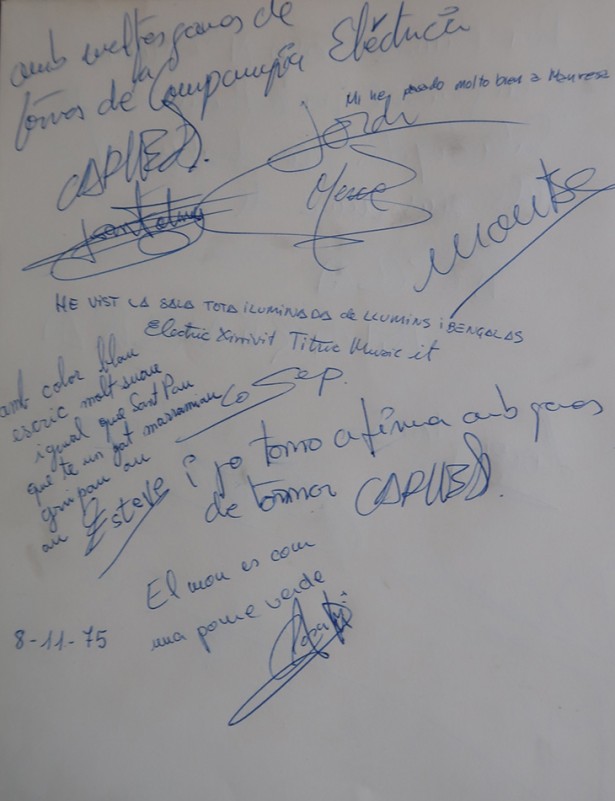 amb moltes ganes de
la
firma de Companyia Elèctrica
Mi he pasado molto bien a Manresa
CAPUES.
Jordi
Mercè
Montse
HE VIST LA SALA TOTA ILUMINADA de LLUMINS i BENGALAS
Electric Ximvit Titue Music it
Sep.
amb color blau
escric molt suau
igual que Sant Pau
que te un gat
gripau
au
Esteve
i jo torno a firma amb ganes
de tornar CAPUES.
El mon es com
una poma verde
8-11-75